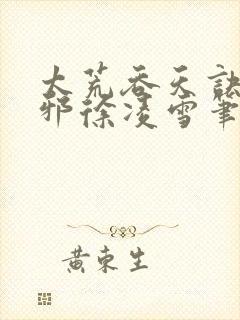 大荒吞天诀
邪徐凌雪笔
黄东生